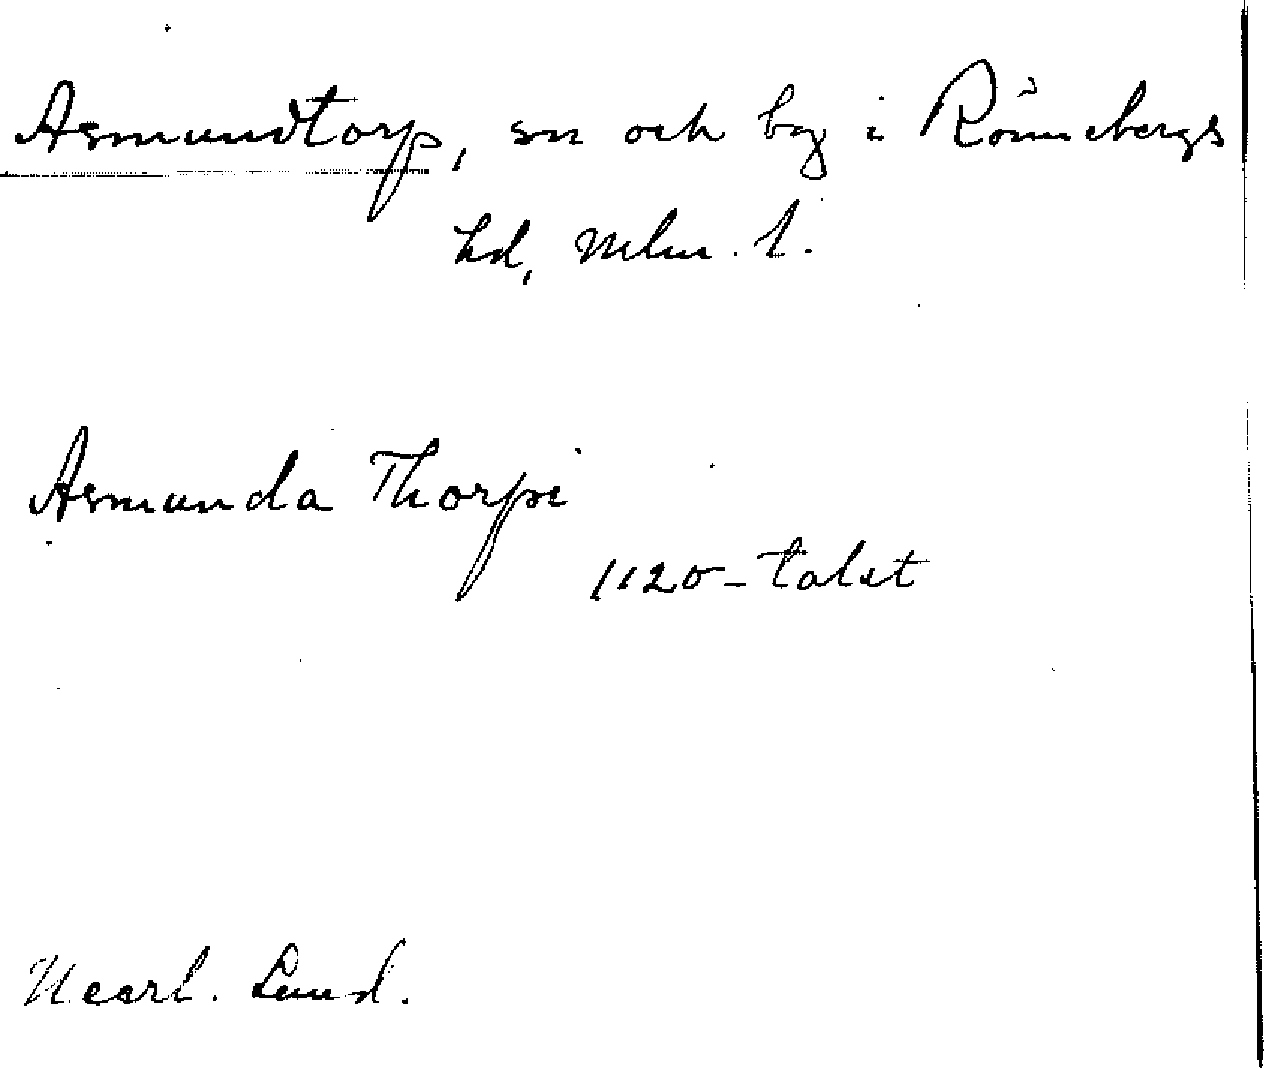 Asmundtorp, sn och by i Rönnebergs
hd, Mlm. l.
Asmunda Thorpi
1120-talet
Necrl. Lund.